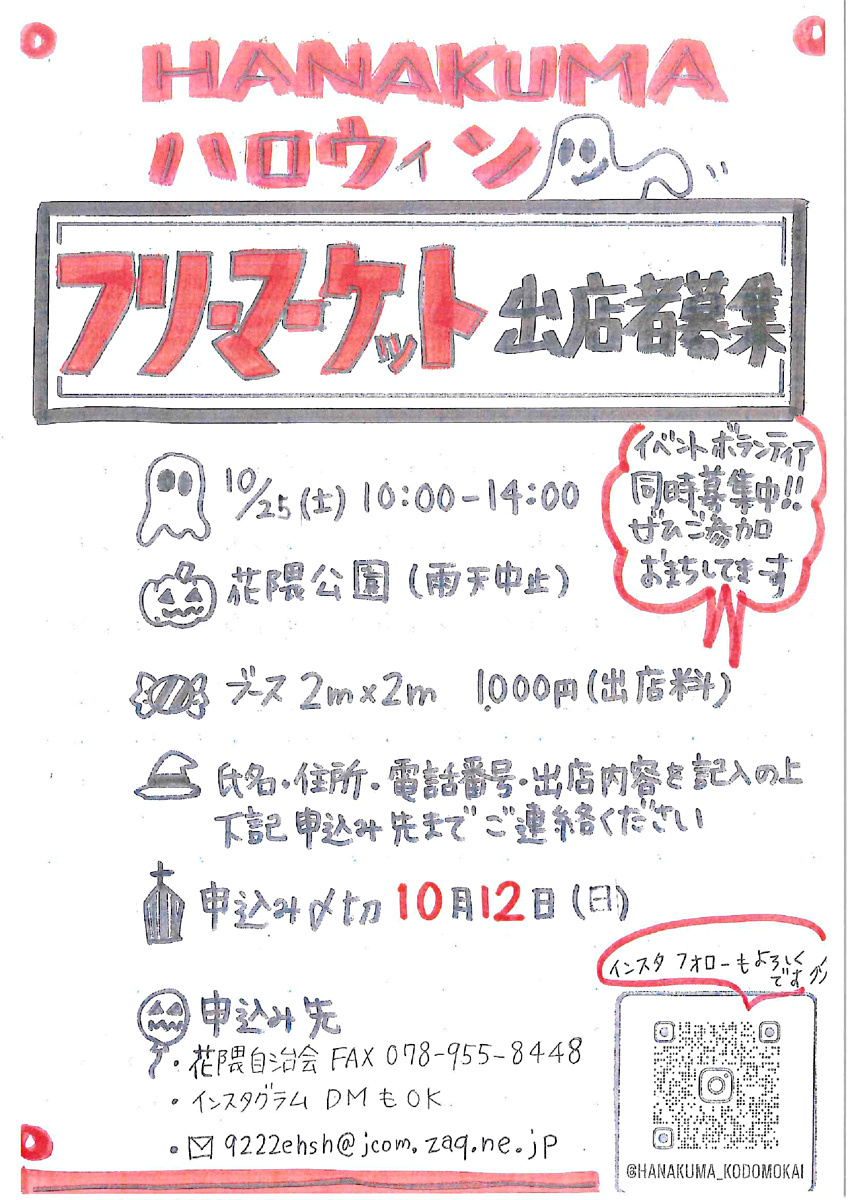 HANAKUMA
ハロウィン
フリーマーケット 出店者募集
イベントボランティア
同時募集中!!
ぜひご参加
おまちしてまーす
10/25(土) 10:00-14:00
花隈公園(雨天中止)
ブース 2m×2m 1,000円(出店料)
氏名・住所・電話番号・出店内容を記入の上
下記申込み先までご連絡ください
申込み〆切 10月12日(日)
インスタ フォローもよろしく
です
申込み先
・花隈自治会 FAX 078-955-8448
・インスタグラム DMもOK
・✉ 9222ehsh@jcom.zaq.ne.jp
@HANAKUMA_KODOMOKAI